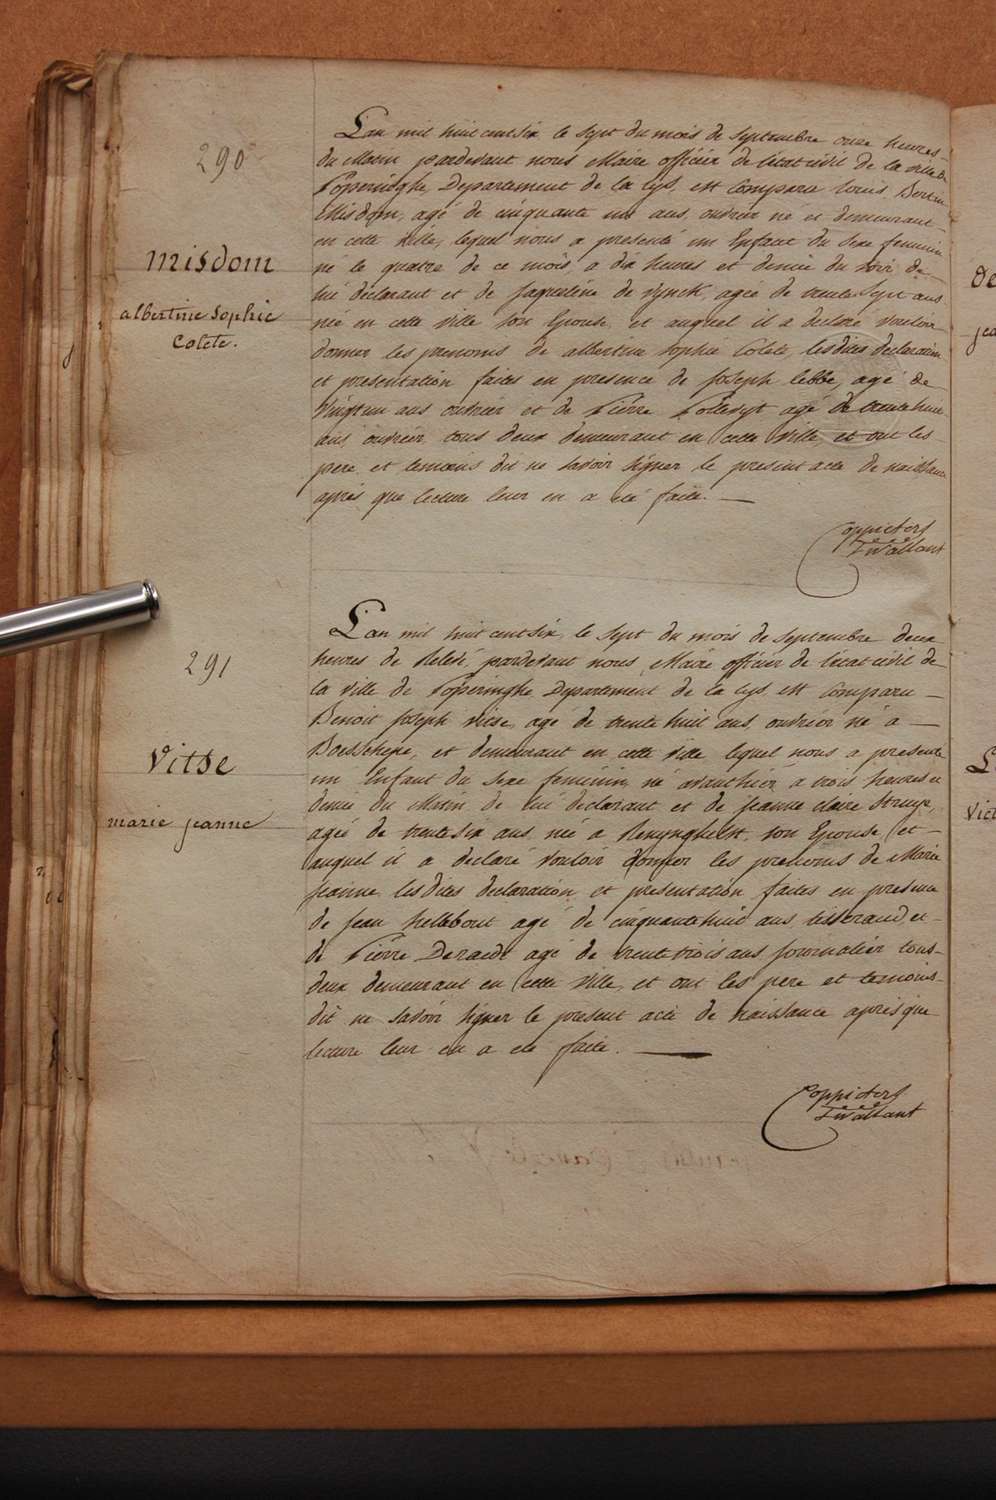 290
misdom
albertine Sophie
Colete.
L'an mil huit cent six le sept du mois de septembre onze heures
du Matin pardevant nous Maire officier de l'état civil de la ville de
Poperinghe Departement de la Lys, est comparu Louis Bertin
Misdom, agé de cinquante un ans, ouvrier né et demeurant
en cette ville, lequel nous a presenté un Enfant du sexe feminin
né le quatre de ce mois, a dix heures et demie du soir, de
lui déclarant et de Jaqueline de vynck, agée de trente sept ans
née en cette ville son Epouse, et auquel il a declaré vouloir
donner les prenoms de albertine sophie Colete, les dites declaration
et presentation faites en presence de Joseph Lebbe, agé de
vingt un ans ouvrier et de Pierre agé de trente huit
ans ouvrier tous deux demeurant en cette ville, et ont les
pere et temoins dit ne savoir signer le present acte de naissance
après que lecture leur en a été faite.
Coppieters
T'wallant
291
Vitse
marie jeanne
L'an mil huit cent six, le sept du mois de septembre deux
heures de Relevé, pardevant nous Maire officier de l'état civil de
la ville de Poperinghe Departement de la Lys, est comparu
Benoit Joseph vitse, agé de trente huit ans ouvrier né à
Boeschepe, et demeurant en cette ville lequel nous a presenté
un Enfant du sexe feminin né avanthier à trois heures et
demie du Matin de lui declarant et de jeanne claire Struye,
agée de trente six ans née a Renynghelst, son Epouse et
auquel il a declaré vouloir donner les prenoms de Marie
Jeanne, les dites declaration et presentation faites en presence
de Jean hellebout agé de cinquante huit ans tisserand, et
de Pierre Deraedt agé de trente trois ans journalier tous
deux demeurant en cette ville, et ont les pere et temoins
dit ne savoir signer le present acte de naissance après que
lecture leur en a été faite.
Coppieters
T'wallant